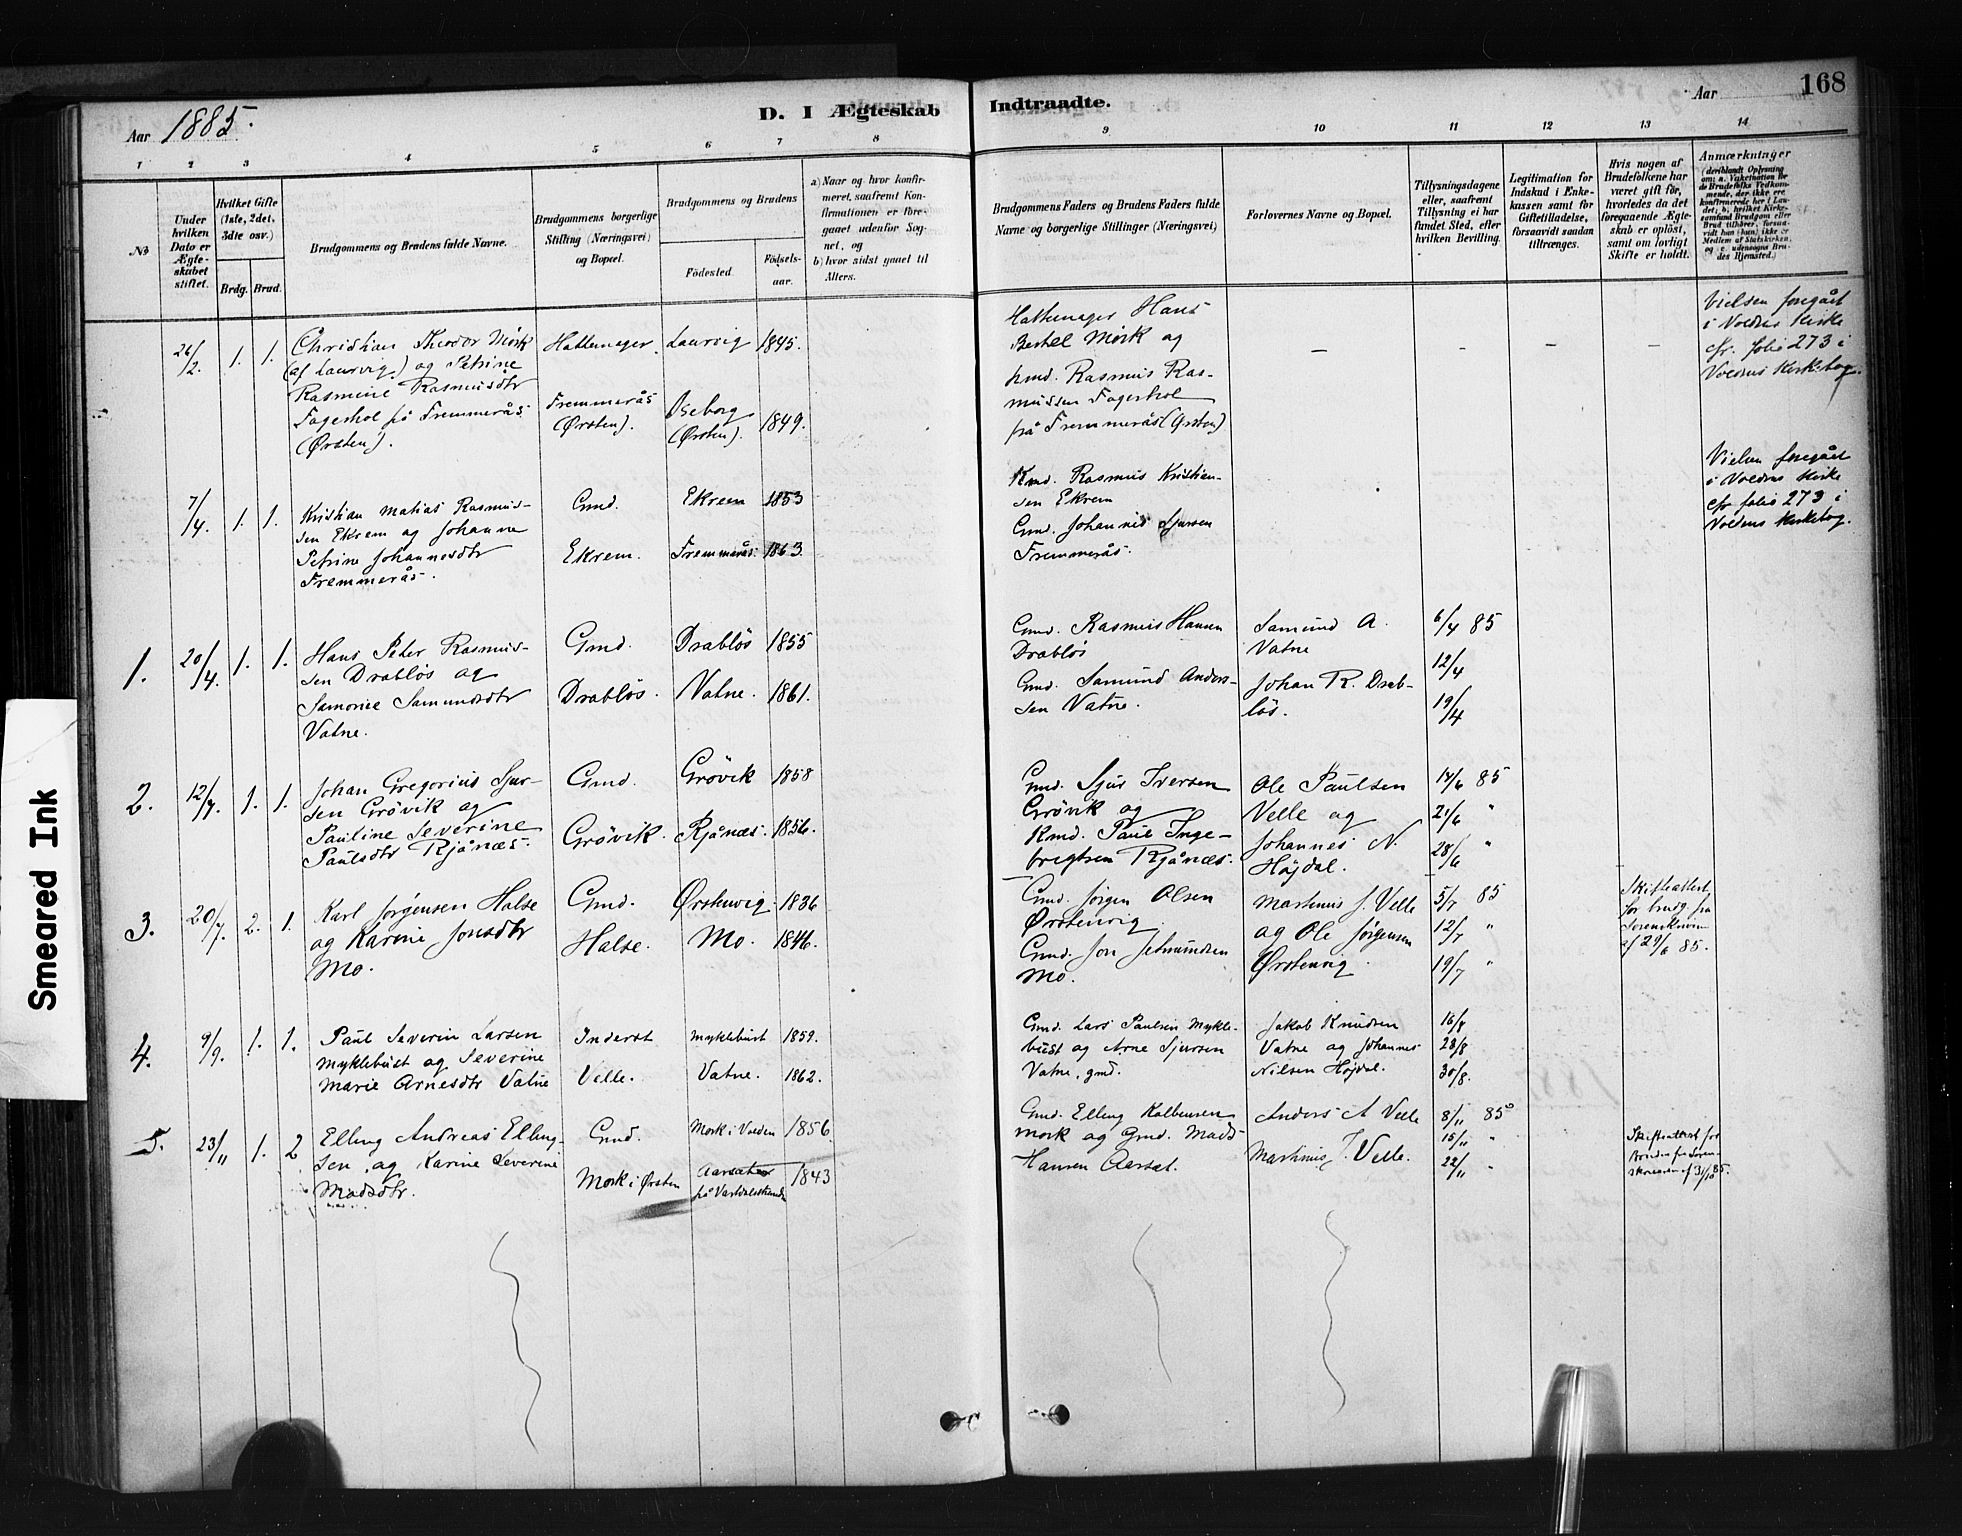 168
Aar 1885.
D. I Ægteskab Indtraadte.
Aar
1 2 3 4 5 6 7 8 9 10 11 12 13 14
No
Under hvilken Dato er Ægteskabet stiftet.
Hvilket Gifte (1ste, 2det, 3dte osv.)
Brdg. Brud.
Brudgommens og Brudens fulde Navne.
Brudgommens borgerlige Stilling (Næringsvei) og Bopæl.
Brudgommens og Brudens
Födested. Födsels-aar.
a) Naar og hvor konfirmeret, saafremt Konfirmationen er foregaaet udenfor Sognet, og
b) hvor sidst gaaet til Alters.
Brudgommens Faders og Brudens Faders fulde Navne og borgerlige Stillinger (Næringsvei)
Forlovernes Navne og Bopæl.
Tillysningsdagene eller, saafremt Tillysning ei har fundet Sted, efter hvilken Bevilling.
Legitimation for Indskud i Enkekassen samt for Giftetilladelse, forsaavidt saadan tiltrænges.
Hvis nogen af Brudefolkene har været gift før, hvorledes da det foregaaende Ægteskab er oplöst, samt om lovligt Skifte er holdt.
Anmærkninger
26/2. 1. 1.
Christian Theodor Mørk
(af Laurvig) og Petrine
Rasmine Rasmusdtr
Fagerhol på Fremmerås
(Ørsten).
Hattemager.
Fremmerås
(Ørsten).
Laurvig 1845.
Oseborg
(Ørsten). 1849.
Hattemager Hans
Bertel Mörk og
Rasmus Ras-
mussen Fagerhol
på Fremmerås (Ørsten)
— — — —
Vielsen foregået
i Voldens Kirke
cfr. folio 273 i
Voldens Kirkebog.
7/4. 1. 1.
Kristian Matias Rasmus-
sen Ekrem og Johanne
Petrine Johannesdtr
Fremmerås.
Gmd.
Ekrem.
Ekrem 1853
Fremmerås 1863.
Kmd. Rasmus Kristian-
sen Ekrem
Gmd. Johannes Sjursen
Fremmerås.
Vielsen foregået
i Voldens Kirke
cfr folio 273 i
Voldens Kirkebog.
1. 20/4. 1. 1.
Hans Peter Rasmus-
sen Drabløs og
Samorine Samundsdtr
Vatne.
Gmd.
Drabløs.
Drabløs 1855
Vatne. 1861.
Gmd. Rasmus Hansen
Drabløs
Gmd. Samund Anders-
sen Vatne.
Samund A.
Vatne
Johan R. Drab-
løs.
6/4 85
12/4
19/4
2. 12/7. 1. 1.
Johan Gregorius Sjur-
sen Grövik og
Pauline Severine
Paulsdtr Rjånæs.
Gmd.
Grövik.
Grövik 1858
Rjånæs. 1856.
Gmd. Sjur Iversen
Grövik og
Kmd. Paul Inge-
brigtsen Rjånæs.
Ole Paulsen
Velle og
Johannes N.
Höjdal.
14/6 85
21/6 "
28/6 "
3. 20/7. 2. 1.
Karl Jørgensen Halse
og Karine Jonsdtr
Mo.
Gmd.
Halse.
Ørstenvig 1836
Mo. 1846.
Gmd. Jørgen Olsen
Ørstenvig
Gmd. Jon Jetmundsen
Mo.
Martinus J. Velle
og Ole Jörgensen
Ørstenvig
5/7 85
12/7 "
19/7 "
Skifteattest
for brudg. fra
Sorenskriveren
af 29/6 85.
4. 9/9. 1. 1.
Paul Severin Larsen
Myklebust og Severine
Marie Arnesdtr Vatne
Inderst
Velle.
Myklebust 1859.
Vatne. 1862.
Gmd. Lars Paulsen Mykle-
bust og Arne Sjursen
Vatne, gmd.
Jakob Knudsen
Vatne og Johannes
Nilsen Höjdal.
16/8
23/8
30/8.
5. 23/11 1. 2
Elling Andreas Elling-
sen og Karine Severine
Madsdtr.
Gmd.
Mork i Ørsten
Mork i Volden 1856
Aarsæter
på Vartdalsstranden 1843
Gmd. Elling Kolbensen
Mork og Gmd. Mads
Hansen Aarset.
Anders A Velle
Martinus J. Velle.
8/11 85
15/11 "
22/11 "
Skifteattest for
Bruden fra Soren-
skriveren af 31/10 85.
Smeared Ink